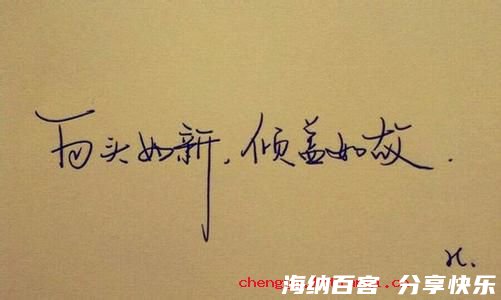 百头如新，倾盖如故.
海纳百客 分享快乐